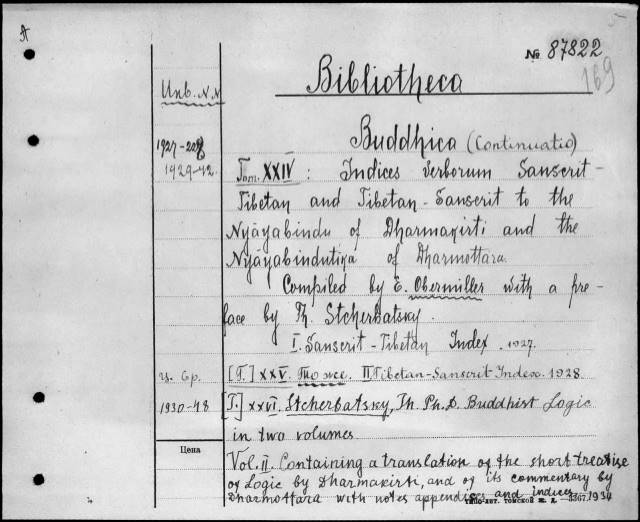 № 87822
169
Bibliotheca
Инв. N.N
Buddhica (Continuatio)
1927-228
1929-42
Tom. XXIV : Indices Verborum Sanscrit-
Tibetan and Tibetan-Sanscrit to the
Nyāyabindu of Dharmakirti and the
Nyāyabindutika of Dharmottara.
Compiled by E. Obermiller with a pre-
face by Th. Stcherbatsky.
I. Sanscrit-Tibetan Index. 1927.
[T.] XXV. Тоже. II Tibetan-Sanscrit Index. 1928.
1930-48
[T.] XXVI. Stcherbatsky, Th. Ph.D. Buddhist Logic
in two volumes
Цена
Vol. II. Containing a translation of the short treatise
of Logic by Dharmakirti, and of its commentary by
Dharmottara with notes appendices and indices. 1930
ТИПО-ЛИТ. ТОМСКОЙ Ж. Д.